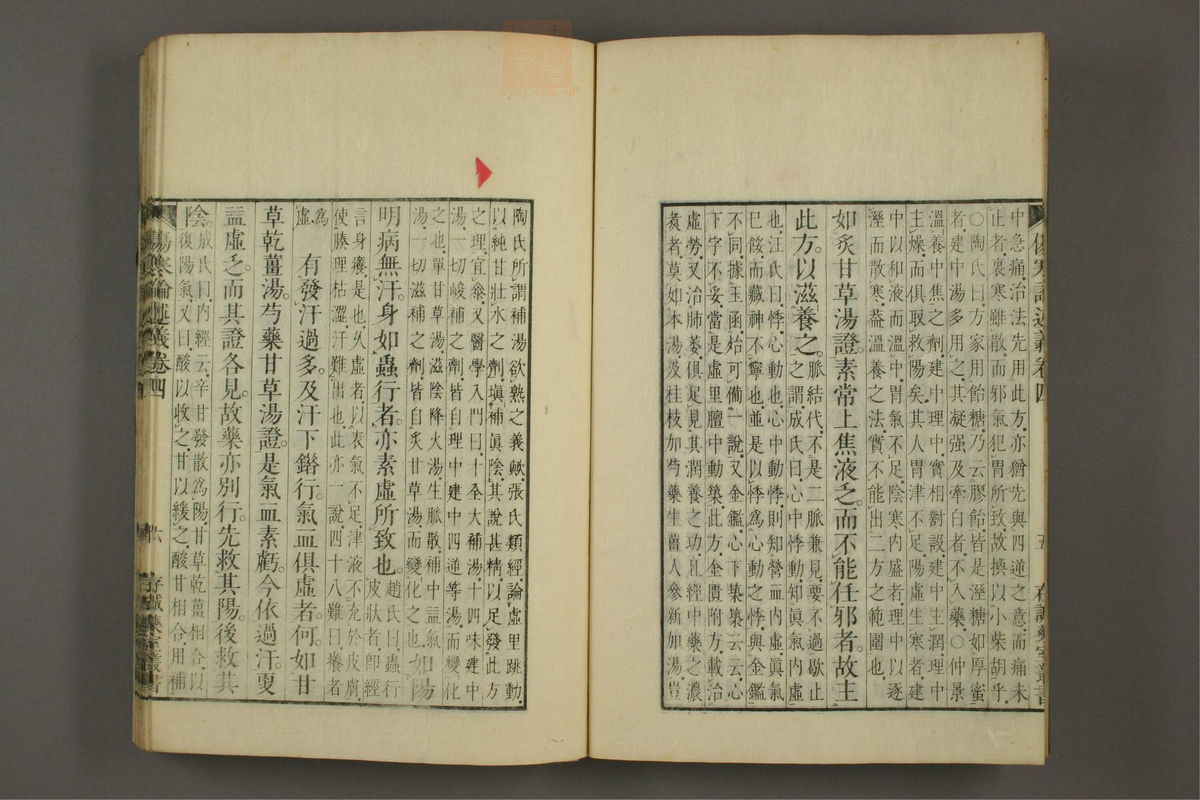 傷寒論述義卷四　五　存誠藥室叢書
中急痛治法先用此方亦猶先與四逆之意而痛未
止者裏寒雖散而邪氣犯胃所致故換以小柴胡乎
○陶氏曰方家用飴糖乃云膠飴皆是溼糖如厚蜜
者建中湯多用之其凝强及牽白者不入藥○仲景
溫養中焦之劑建中理中實相對設建中主潤理中
主燥而俱取救陽矣其人胃津不足陽虛生寒者建
中以和液而溫中胃氣不足陰寒內盛者理中以逐
溼而散寒葢溫養之法實不能出二方之範圍也
如炙甘草湯證素常上焦液乏而不能任邪者故主
此方以滋養之
脈結代不是二脈兼見要不過歇止
之謂成氏曰心中悸動知眞氣內虛
也汪氏曰悸心動也心中悸動則知營血內虛眞氣
已餒而藏神不寧也並是以悸爲心動之悸與金鑑
不同據玉函始可備一說又金鑑心下築築云云心
下字不妥當是虛里膻中動築此方金匱附方載治
虛勞又治肺萎俱足見其潤養之功且經中藥之濃
煑者莫如本湯及桂枝加芍藥生薑人參新加湯豈
陶氏所謂補湯欲熟之義歟張氏類經論虛里跳動
以純甘壯水之劑塡補眞陰其說甚精以足發此方
之理宜叅又醫學入門曰十全大補湯十四味建中
湯一切峻補之劑皆自理中建中四逆等湯而變化
之也單甘草湯滋陰降火湯生脈散補中益氣
湯一切滋補之劑皆自炙甘草湯而變化之也
如陽
明病無汗身如蟲行者亦素虛所致也
趙氏曰蟲行
皮狀者即經
言身癢是也久虛者以表氣不足津液不充於皮膚
使腠理枯澀汗難出也此亦一說四十八難曰癢者
爲
虛
有發汗過多及汗下錯行氣血俱虛者何如甘
草乾薑湯芍藥甘草湯證是氣血素虧今依過汗更
益虛之而其證各見故藥亦別行先救其陽後救其
陰
成氏曰內經云辛甘發散爲陽甘草乾薑相合以
復陽氣又曰酸以收之甘以緩之酸甘相合用補
傷寒論述義卷四　六　存誠藥室叢書